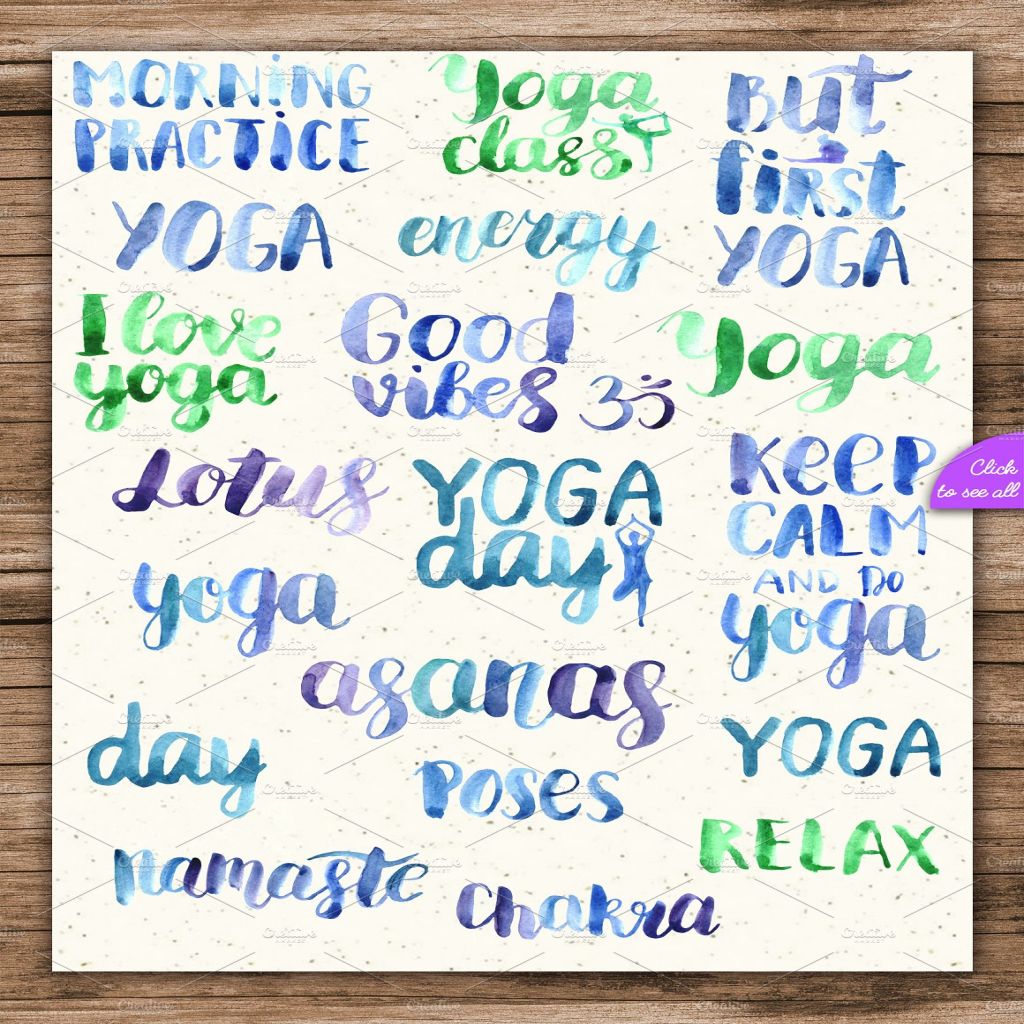 MORNING
PRACTICE
Yoga
class
But
first
YOGA
YOGA
energy
I love
yoga
Good
vibes ॐ
Yoga
Lotus
YOGA
day
KEEP
CALM
AND DO
yoga
Click
to see all
yoga
asanas
day
POSES
YOGA
RELAX
namaste
Chakra
Creative
MARKET